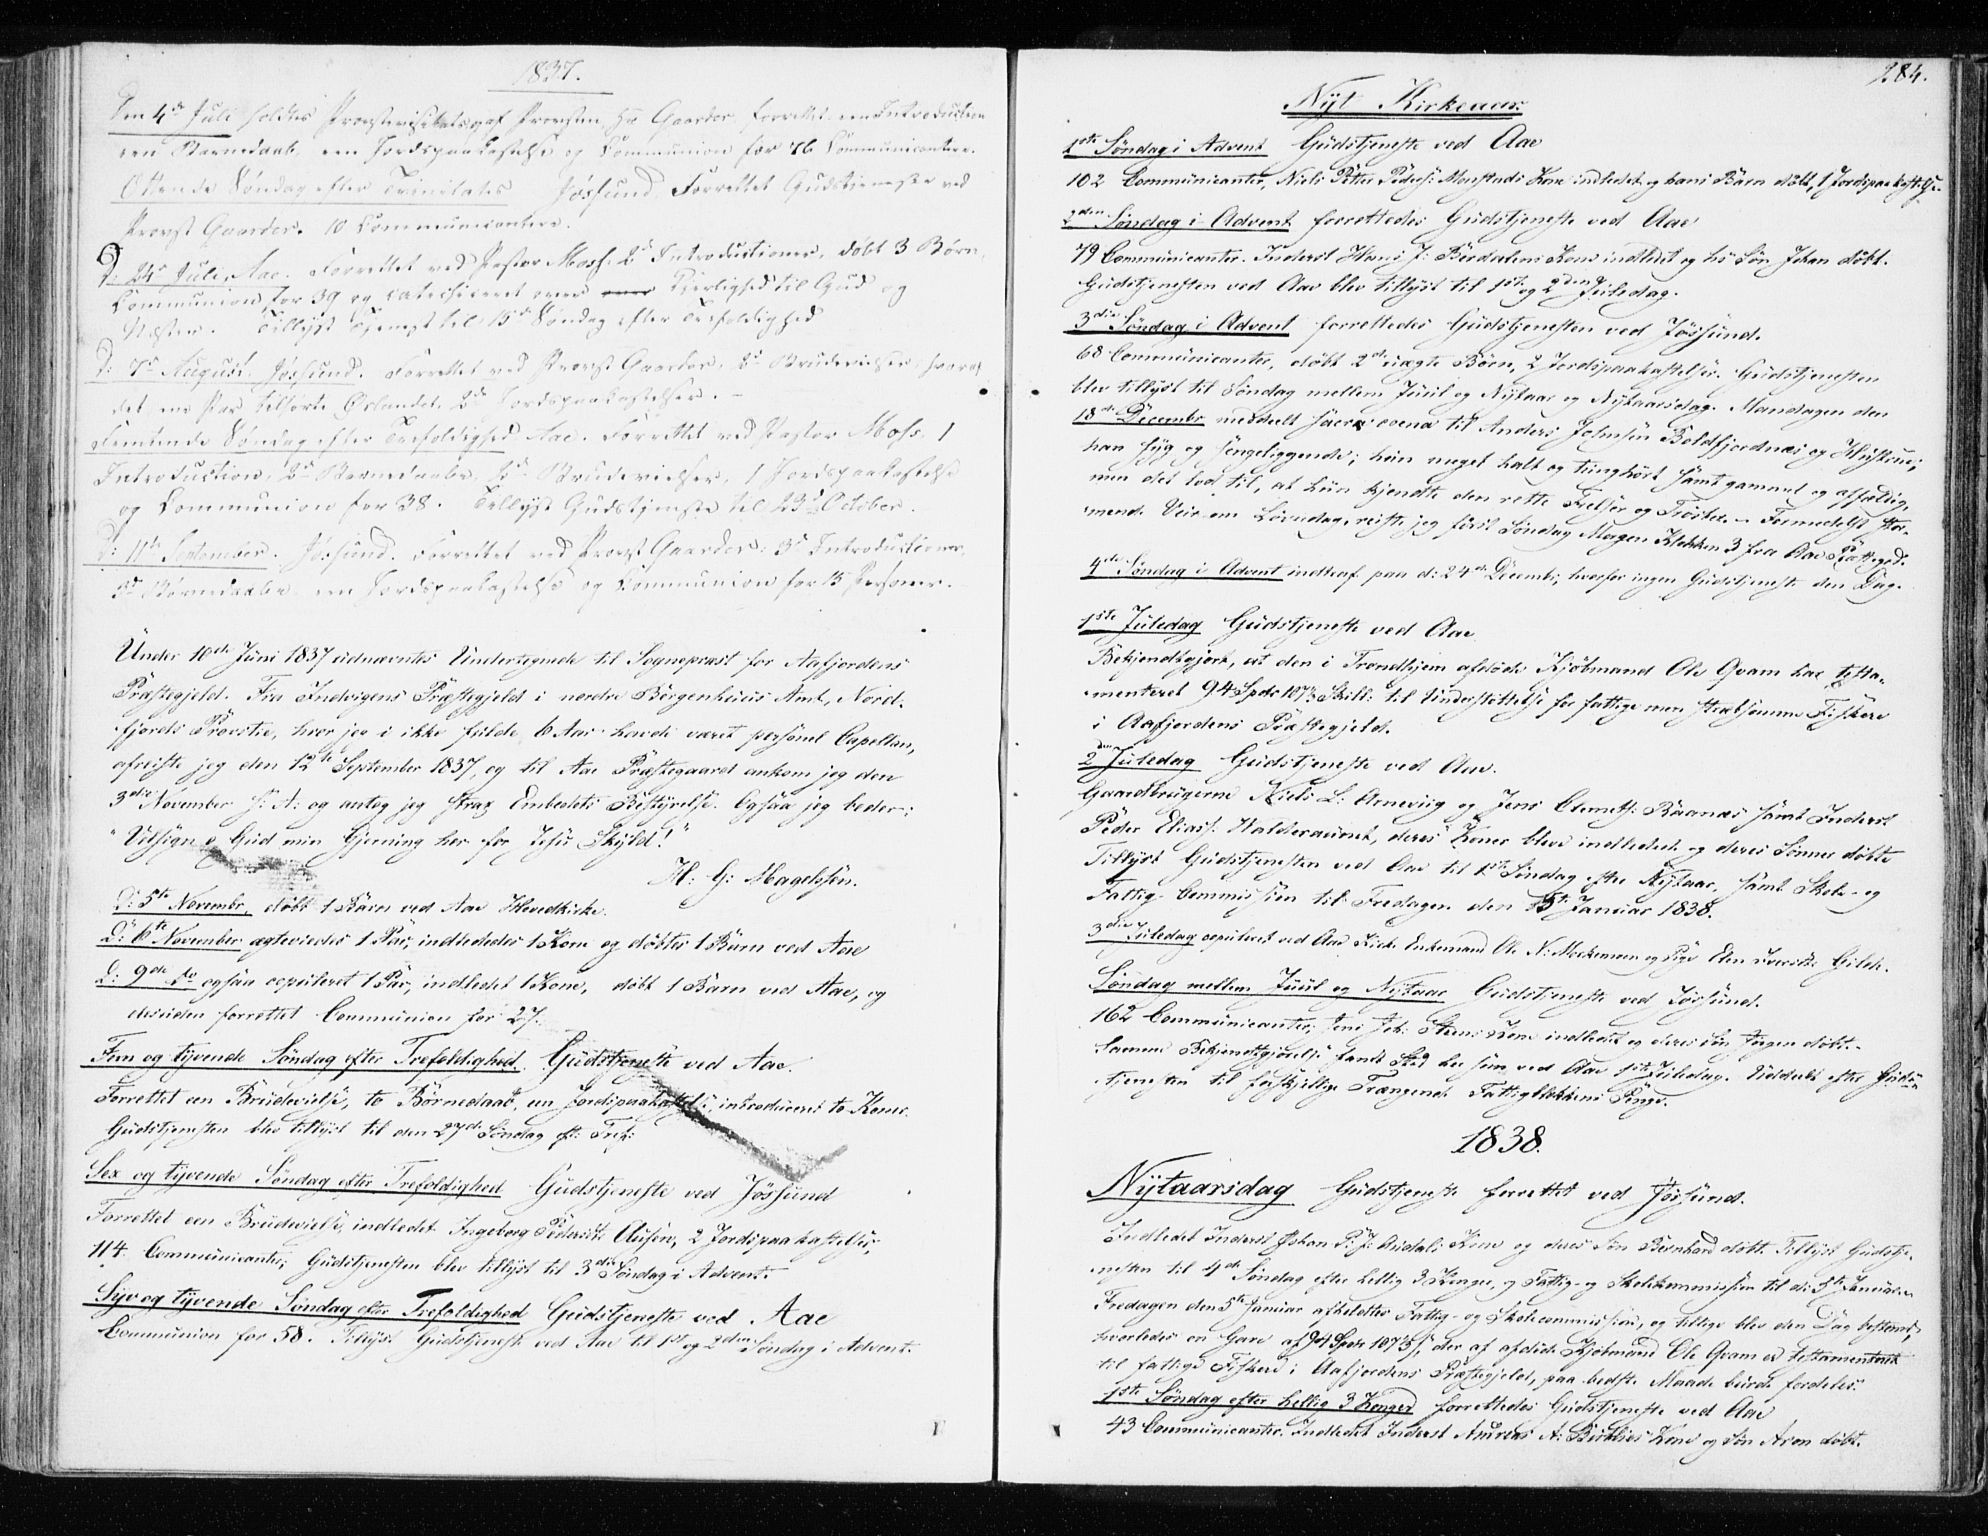 1837.
Den 4de Juli holdtes Provstevisitats af Provsten Hr Gaarder, forrettet een Introduction
een Barnedaab, een Jordspaakastelse og Communion for 76 Communicantere.
Ottende Søndag efter Trinitatis Jøssund Forrettet Gudstjeneste ved
Provst Gaarder. 10 Communicantere.
D: 24de Juli, Aae. Forrettet ved Pastor Moss. 2de Introductioner, døbt 3 Børn,
Communion for 39 og catechiseret over Kjerlighed til Gud og
Næsten. Tillyst Tjenest til 15de Søndag efter Trefoldighed
D: 7de August. Jøssund. Forrettet ved Provst Gaarder, 2de Brudevielser, hvoraf
det ene Par tilhørte Ørlandet. 2de Jordspaakastelser. -
Femtende Søndag efter Trefoldighed Aae. Forrettet ved Pastor Moss, 1
Introduction, 2de Barnedaabe, 2de Brudevielser, 1 Jordspaakastelse
og Communion for 38. Tillyst Gudstjeneste til 23de October.
D: 11te September. Jøssund. Forrettet ved Provst Gaarder: 3de Introductioner,
3de Børnedaabe een Jordspaakastelse og Communion for 15 Personer.
Under 10de Juni 1837 udnævntes Undertegnede til Sognepræst for Aafjordens
Præstegjeld. Fra Indvigens Præstegjeld i nordre Bergenhuus Amt, Nord-
fjords Provstie, hvor jeg i ikke fulde 6 Aar havde været personel Capellan,
afreiste jeg den 12te September 1837, og til Aae Præstegaard ankom jeg den
3die November s: A: og antog jeg strax Embedets Bestyrelse. Ogsaa jeg beder:
"Velsigne Gud min Gjerning her for Jesu Skyld!"
H: G: Magelssen.
D: 5te Novembr. døbt 1 Barn ved Aae Hovedkirke.
D: 6te November ægteviedes 1 Par, indlededes 1 Kone og døbtes 1 Barn ved Aae
D: 9de do ogsaa copuleret 1 Par, indledet 1 Kone, døbt 1 Barn ved Aae, og
desuden forrettet Communion for 27.
Fem og tyvende Søndag efter Trefoldighed. Gudstjeneste ved Aae.
Forrettet een Brudevielse, to Børnedaab, en Jordspaakastelse, introduceret to Koner.
Gudstjenesten blev tillyst til den 27de Søndag eft: Tref:
Sex og tyvende Søndag efter Trefoldighed Gudstjeneste ved Jøssund
Forrettet een Brudevielse, indledet Ingeborg Pedersdt. Ausen, 2 Jordspaakastelser,
114 Communicanter; Gudstjenesten blev tillyst til 3die Søndag i Advent.
Syv og tyvende Søndag efter Trefoldighed Gudstjeneste ved Aae
Communion for 58. Tillyst Gudstjeneste ved Aae til 1ste og 2den Søndag i Advent.
284.
Nyt Kirkeaar.
1ste Søndag i Advent Gudstjeneste ved Aae
102 Communicanter, Niels Peter Peders: Monstads Kone indledet og hans Barn døbt, 1 Jordspaakastelse.
2den Søndag i Advent forrettedes Gudstjeneste ved Aae
79 Communicanter. Inderst Hans J: Berdalens Kone indledet og hs Søn Johan døbt.
Gudstjenesten ved Aae blev tillyst til 1ste og 2den Juledag.
3die Søndag i Advent forrettedes Gudstjenesten ved Jøssund.
68 Communicanter, døbt 2de uægte Børn, 2 Jordspaakastelser. Gudstjenesten
blev tillyst til Søndag mellem Juul og Nytaar og Nytaarsdag. Mandagen den
18de Decembr meddeelt sacra coena til Anders Johnsen Boldfjordnes og Hustrue;
han syg og sengeliggende; hun meget halt og tunghørt samt gammel og affældig,
men det lod til, at hun kjendte den rette Frelser og Trøster. – Formedelst stor-
mende Veir om Løverdag, reiste jeg først Søndag Morgen Klokken 3 fra Aae Præstegd.
4de Søndag i Advent indtraf paa d: 24de Decembr, hvorfor ingen Gudstjeneste den Dag.
1ste Juledag Gudstjeneste ved Aae
Bekjendtgjort, at den i Trondhjem afdøde Kjøbmand Ole Qvam har testa-
menteret 94 Spdr 107½ Skill: til Understøttelse for fattige men stræbsomme Fiskere
i Aafjordens Præstegjeld.
2den Juledag Gudstjeneste ved Aae.
Gaardbrugerne Niels L: Arnevig og Jens Clemets: Raanæs samt Inderst
Peder Eliass: Walderaunet, deres Koner bleve indledede og deres Sønner døbte
Tillyst Gudstjenesten ved Aae til 1ste Søndag efter Nytaar, samt Skole- og
Fattig-Commission til Fredagen den 5te Januar 1838.
3die Juledag copuleret ved Aae Kirke Enkemand Ole N: Mørkemoen og Pige Elen Iversdt: Gilde.
Søndag mellem Juul og Nytaar Gudstjeneste ved Jøssund.
162 Communicanter; Jens Joh: Steens Kone indledet og deres Søn Jørgen døbt.
Samme Bekjendtgjørelse fandt Sted her som ved Aae 1ste Juledag. Uddeelt efter Guds-
tjenesten til forskjellige Trængende Fattigblokkens Penge.
1838.
Nytaarsdag Gudstjeneste forrettet ved Jøssund.
Indledet Inderst Johan P: J: Audals Kone og deres Søn Bernhard døbt. Tillyst Gudstje-
nesten til 4de Søndag efter hellig 3 Konger, og Fattig- og Skolekommission til d: 5te Januar.
Fredagen den 5te Januar afholdtes Fattig- og Skolecommission, og tillige blev den Dag bestemt,
hvorledes en Gave af 94 Spdr 107½ s, der af afdøde Kjøbmand Ole Qvam er testamenteret
til fattige Fiskere i Aafjordens Præstegjeld, paa bedste Maade burde fordeles.
1ste Søndag efter hellig 3 Konger forrettedes Gudstjeneste ved Aae
43 Communicanter. Indledet Inderst Andreas A: Berklies Kone og Søn Aron døbt.